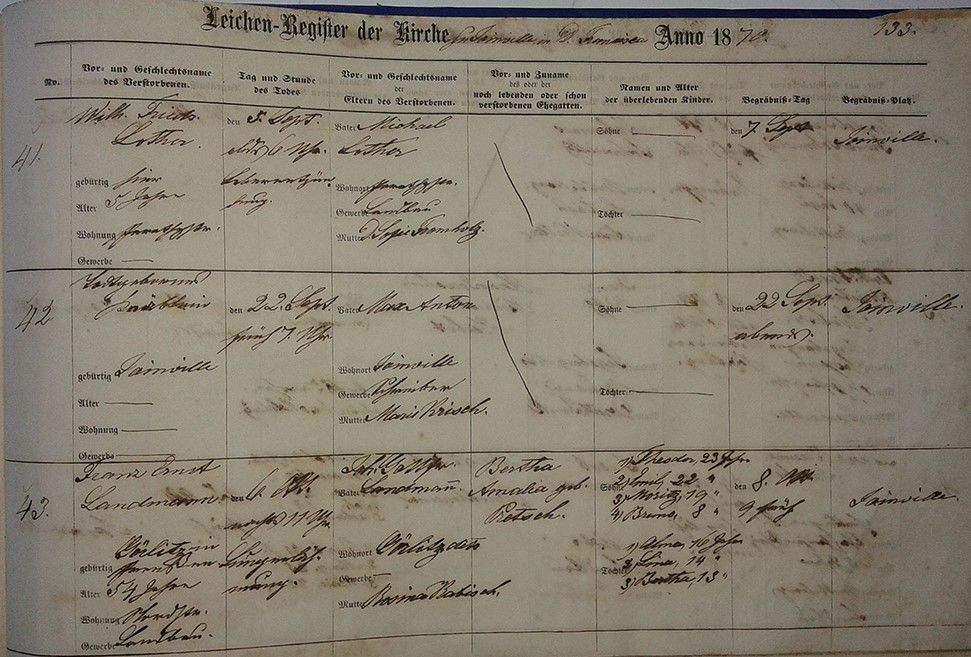 Leichen-Register der Kirche zu Joinville in D. Francisca Anno 1870. 133.
No.
Vor- und Geschlechtsname
des Verstorbenen.
Tag und Stunde
des Todes
Vor- und Geschlechtsname
der
Eltern des Verstorbenen.
Vor- und Zuname
des oder der
noch lebenden oder schon
verstorbenen Ehegatten.
Namen und Alter
der überlebenden Kinder.
Begräbniß-Tag
Begräbniß-Platz.
41.
Wilh. Friedr.
Lother.
gebürtig hier
Alter 5 Jahre
Wohnung
Gewerbe —
den 5. Sept.
6 Uhr.
Vater Michael
Lother
Wohnort
Gewerbe Landbau
Mutter Sofie Kromholz.
Söhne —
Töchter —
den 7. Sept
Joinville.
42
Todtgebornes
Knäblein
gebürtig Joinville
Alter —
Wohnung —
Gewerbe —
den 22. Sept.
früh 7. Uhr
Vater Max Anton
Wohnort Joinville
Gewerbe Schreiber
Mutter Marie Krisch.
Söhne —
Töchter —
den 22 Sept.
abends.
Joinville.
43.
Franz Ernst
Landmann
gebürtig Görlitz in
Preußen
Alter 54 Jahre
Wohnung Nordstr.
Gewerbe Landbau.
den 6. Okt.
nachts 11 Uhr
Lungenläh-
mung.
Vater Joh. Gottfr.
Landmann.
Wohnort Görlitz
Gewerbe —
Mutter Rosina Rabisch.
Bertha
Amalia geb.
Petsch.
Söhne
1) Theodor, 23 Jahr.
2) Emil, 22 "
3) Moritz, 19 "
4) Bruno, 8 "
Töchter
1) Alma, 16 Jahr
2) Lina, 14 "
3) Bertha, 13 "
den 8. Okt.
9 früh
Joinville.